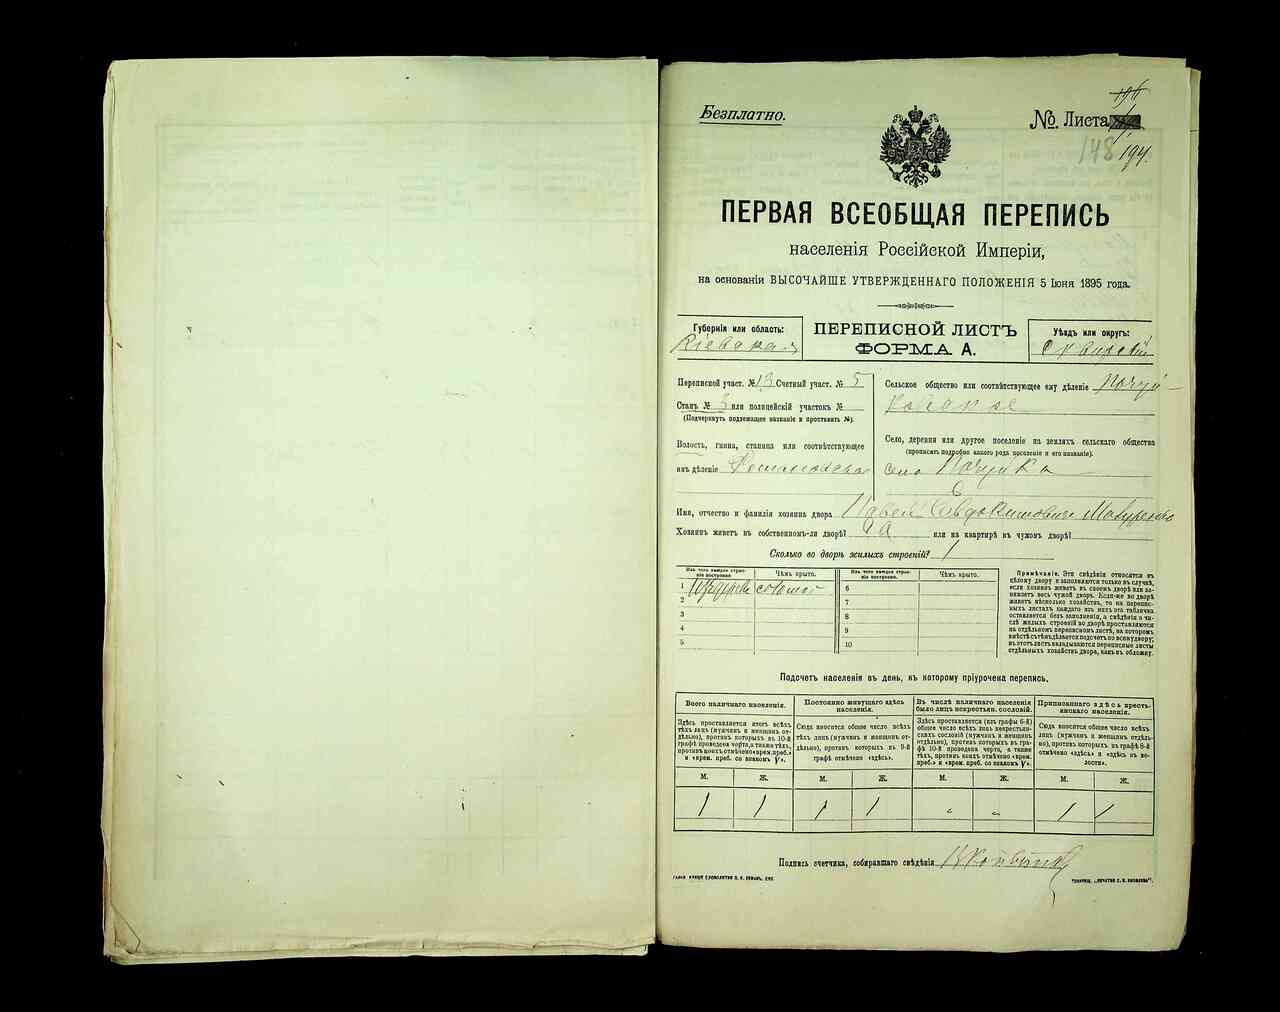 Безплатно.
№ Листа
196
148 194.
ПЕРВАЯ ВСЕОБЩАЯ ПЕРЕПИСЬ
населенія Россійской Имперіи,
на основаніи ВЫСОЧАЙШЕ УТВЕРЖДЕННАГО ПОЛОЖЕНІЯ 5 Іюня 1895 года.
Губернія или область:
Кіевская
ПЕРЕПИСНОЙ ЛИСТЪ
ФОРМА А.
Уѣздъ или округъ:
Сквирскій
Переписной участ. № 13 Счетный участ. № 5
Станъ № 3 или полицейскій участокъ №
(Подчеркнуть подлежащее названіе и проставить №).
Волость, гмина, станица или соотвѣтствующее
имъ дѣленіе
Сельское общество или соотвѣтствующее ему дѣленіе Почуй-
ковское
Село, деревня или другое поселеніе на земляхъ сельскаго общества
(прописать подробно какого рода поселеніе и его названіе).
село Почуйки
Имя, отчество и фамилія хозяина двора Павел Евдокимович
Хозяинъ живетъ въ собственномъ-ли дворѣ? да или на квартирѣ въ чужомъ дворѣ?
Сколько во дворѣ жилыхъ строеній? 1
Изъ чего каждое строе-
ніе построено.
Чѣмъ крыто.
Изъ чего каждое строе-
ніе построено.
Чѣмъ крыто.
1 Из дерева соломой
2
3
4
5
6
7
8
9
10
Примѣчаніе. Эти свѣдѣнія относятся къ
цѣлому двору и заполняются только въ случаѣ,
если хозяинъ живетъ въ своемъ дворѣ или за-
нимаетъ весь чужой дворъ. Если-же во дворѣ
живетъ нѣсколько хозяйствъ, то на перепис-
ныхъ листахъ каждаго изъ нихъ эта табличка
оставляется безъ заполненія, а свѣдѣнія о чи-
слѣ жилыхъ строеній во дворѣ проставляются
на отдѣльномъ переписномъ листѣ, на которомъ
вмѣстѣ съ тѣмъ дѣлается подсчетъ по всему двору;
въ этотъ листъ вкладываются переписные листы
отдѣльныхъ хозяйствъ двора, какъ въ обложку.
Подсчетъ населенія въ день, къ которому пріурочена перепись.
Всего наличнаго населенія.
Здѣсь проставляется итогъ всѣхъ
тѣхъ лицъ (мужчинъ и женщинъ от-
дѣльно), противъ которыхъ въ 10-й
графѣ проведена черта, а также тѣхъ,
противъ коихъ отмѣчено «врем. преб.»
и «врем. преб. со знакомъ V».
Постоянно живущаго здѣсь
населенія.
Сюда вносится общее число всѣхъ
тѣхъ лицъ (мужчинъ и женщинъ от-
дѣльно), противъ которыхъ въ 9-й
графѣ отмѣчено «здѣсь».
Въ числѣ наличнаго населенія
было лицъ некрестьян. сословій.
Здѣсь проставляется (изъ графы 6-й)
общее число всѣхъ лицъ некрестьян-
скихъ сословій (мужчинъ и женщинъ
отдѣльно), противъ которыхъ въ гра-
фѣ 10-й проведена черта, а также
тѣхъ, противъ коихъ отмѣчено «врем.
преб.» и «врем. преб. со знакомъ V».
Приписаннаго здѣсь кресть-
янскаго населенія.
Сюда вносится общее число всѣхъ
лицъ (мужчинъ и женщинъ отдѣль-
но), противъ которыхъ въ графѣ 8-й
отмѣчено «здѣсь» и «здѣсь въ во-
лости».
М. Ж. М. Ж. М. Ж. М. Ж.
1 1 1 1 „ „ 1 1
Подпись счетчика, собиравшаго свѣдѣнія